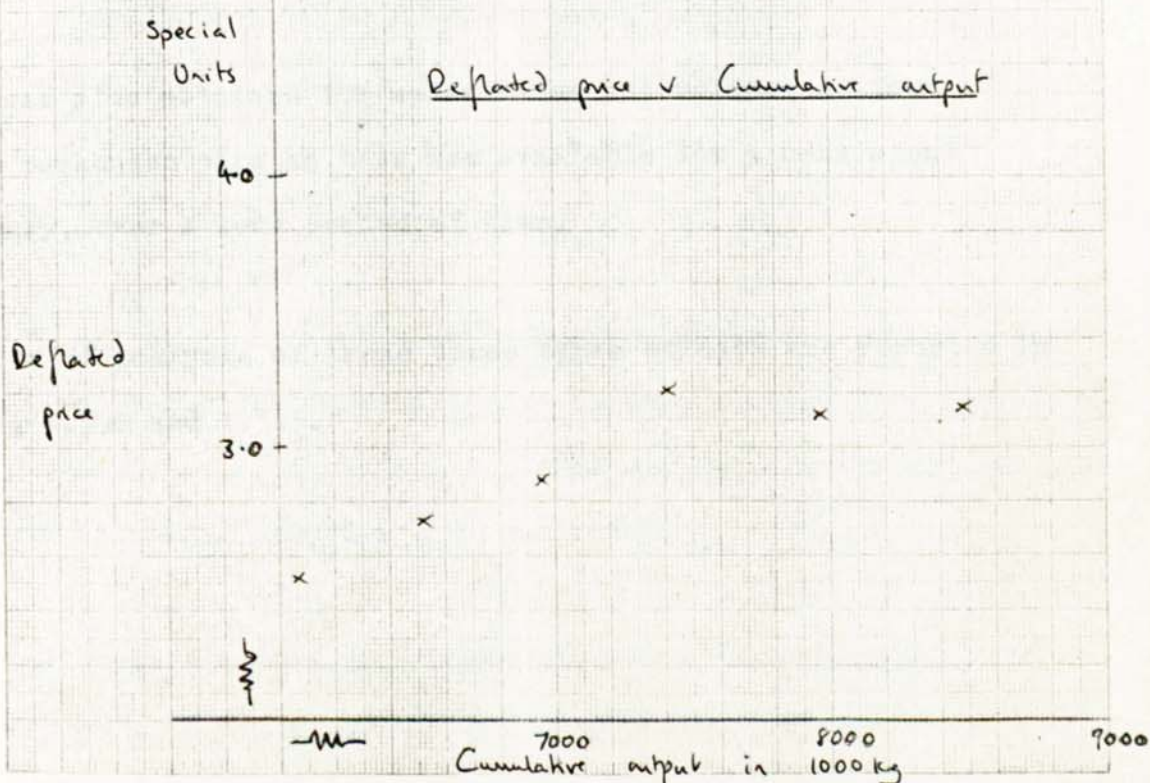 Special
Units
Deflated price v Cumulative output
4.0
Deflated
price
3.0
7000 8000 9000
Cumulative output in 1000 kg